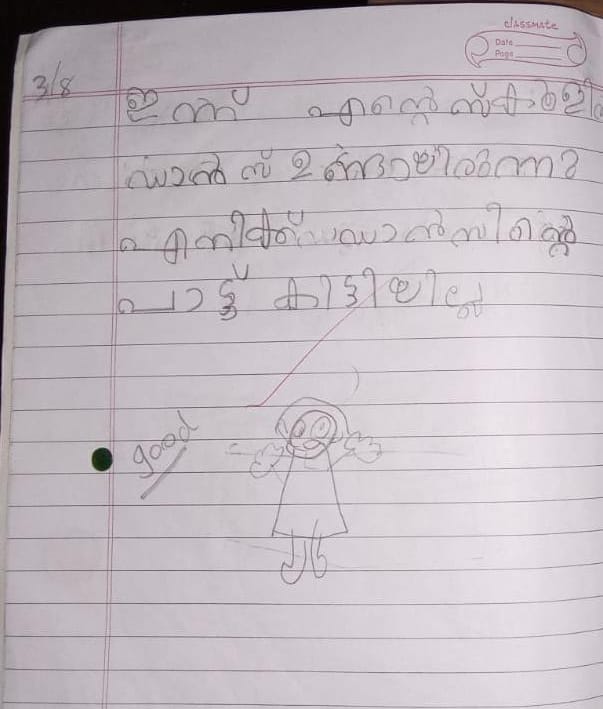 classmate
Date
Page
3/8
ഇന്ന് എന്റെ സ്കൂളിൽ
ഡാൻസ് ഉണ്ടായിരുന്നു
എനിക്ക് ഡാൻസിന്റെ
പാട്ട് കിട്ടിയില്ല
good